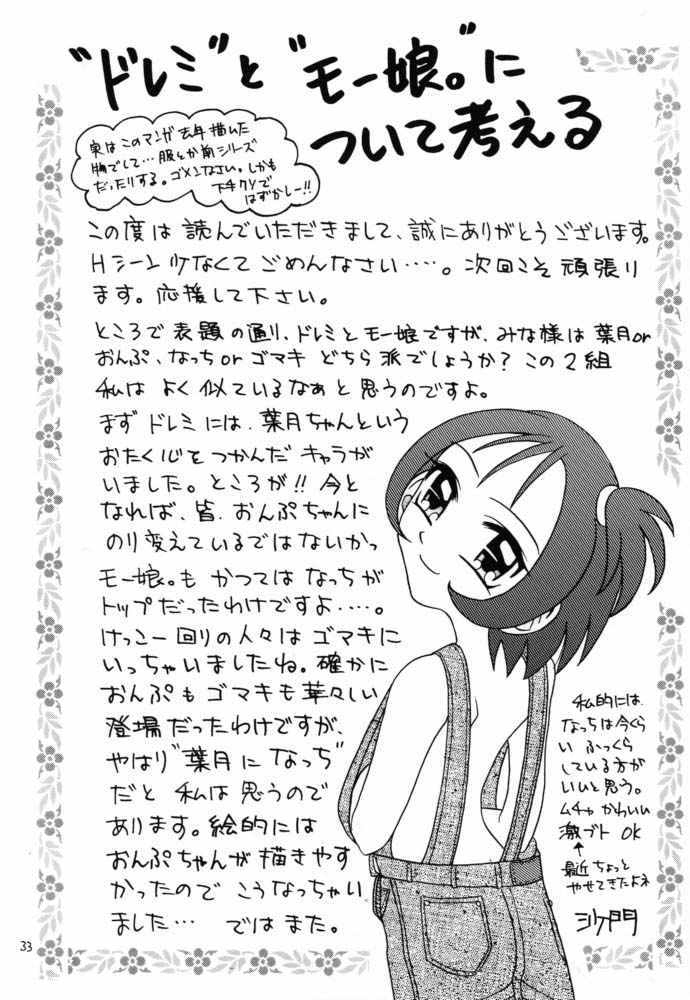 "ドレミ"と"モー娘。"に
ついて考える
実はこのマンガ去年描いた
物でして…服とか前シリーズ
だったりする。ゴメンなさい。しかも
下手クソで
はずかしー!!
この度は読んでいただきまして、誠にありがとうございます。
Hシーン少なくてごめんなさい……。次回こそ頑張り
ます。応援して下さい。
ところで表題の通り、ドレミとモー娘ですが、みな様は葉月or
おんぷ、なっちorゴマキ どちら派でしょうか?この2組
私はよく似ているなぁと思うのですよ。
まずドレミには、葉月ちゃんという
おたく心をつかんだキャラが
いました。ところが!!今と
なれば、皆、おんぷちゃんに
のり変えているではないかっ
モー娘。もかつてはなっちが
トップだったわけですよ……。
けっこー回りの人々はゴマキに
いっちゃいましたね。確かに
おんぷもゴマキも華々しい
登場だったわけですが、
やはり"葉月になっち"
だと私は思うので
あります。絵的には
おんぷちゃんが描きやす
かったのでこうなっちゃい
ました… ではまた。
私的には、
なっちは今くら
いふっくら
している方が
いいと思う。
ムチャかわいい
激ブトOK
↑
最近ちょっと
やせてきたよネ
沙門
33